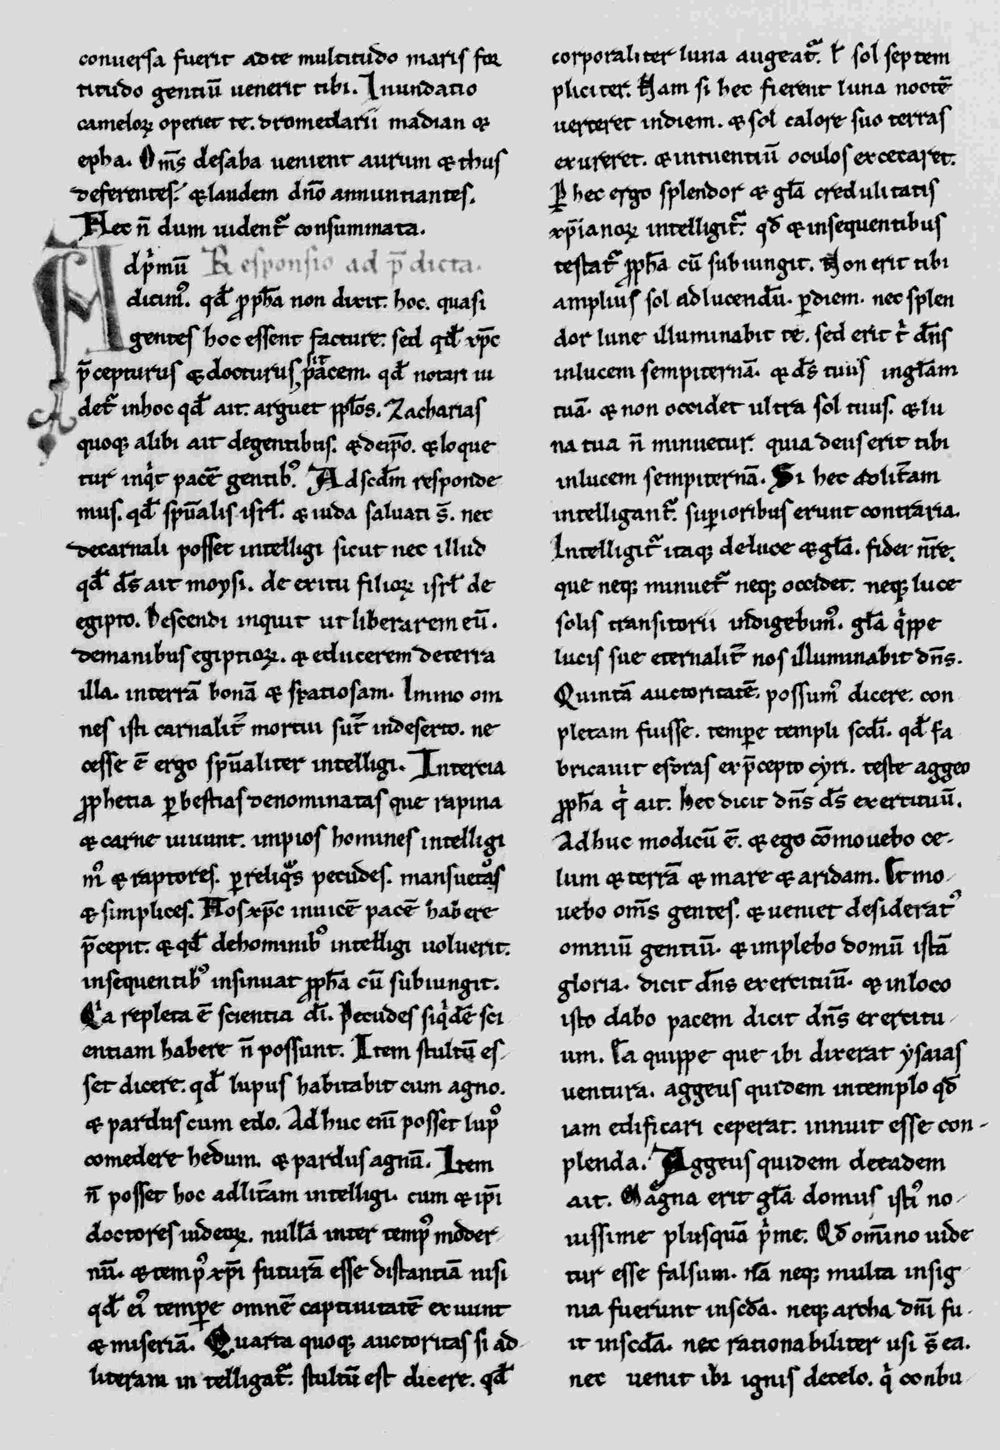 conuersa fuerit adte multitudo maris for
titudo gentiū uenerit tibi. Inundatio
cameloꝝ operiet te. dromedarii madian &
epha. Om̄s desaba uenient aurum & thus
deferentes. & laudem dn̄o annuntiantes.
Hec n̄ dum uident᷑ consummata.
Ad p̄mū Responsio ad p̄dicta.
dicim᷒. qd̄ ꝓph̄a non dixit. hoc. quasi
gentes hoc essent facture. sed qd̄ xp̄c
p̄cepturus & docturus sit pacem. qd̄ notari ui
det᷑ inhoc qd̄ ait. arguet pp̄los. Zacharias
quoqꝫ alibi ait degentibus. & deip̄o. & loque
tur inq̇t pacē gentib᷒. Ad scd̄m responde
mus. qd̄ sp̄ualis isrl̄. & iuda saluati s̄. nec
decarnali posset intelligi sicut nec illud
qd̄ ds̄ ait moysi. de exitu filioꝝ isrl̄ de
egipto. Descendi inquit ut liberarem eū.
demanibus egiptioꝝ. & educerem deterra
illa. interrā bonā & spatiosam. Immo om
nes isti carnalit᷑ mortui sūt indeserto. ne
cesse ē ergo sp̄ualiter intelligi. Intercia
ꝓphetia ꝑ bestias denominatas que rapina
& carne uiuunt. impios homines intelligi
m᷒ & raptores. ꝑ reliq̊s pecudes. mansuetos
& simplices. Hos xp̄c inuicē pacē habere
p̄cepit. & qd̄ dehominib᷒ intelligi uoluerit.
insequentib᷒ insinuat ꝓph̄a cū subiungit.
Q̇a repleta ē scientia dī. Pecudes siq̇dē sci
entiam habere n̄ possunt. Item stultū es
set dicere. qd̄ lupus habitabit cum agno.
& pardus cum edo. Ad huc enī posset lup᷒
comedere hedum. & pardus agnū. Item
n̄ posset hoc adlit̄am intelligi. cum & ip̄i
doctores iudeoꝝ. nullā inter temp᷒ moder
nū. & temp᷒ xp̄i futurā esse distantiā nisi
qd̄ ei᷒ tempore omnē captiuitatē exuunt
& miseriā. Quarta quoqꝫ auctoritas si ad
literam intelligat᷑. stultū est dicere. qd̄
corporaliter luna augeat᷑. l̄ sol septem
pliciter. Nam si hec fierent luna noctē
uerteret indiem. & sol calore suo terras
exureret. & intuentiū oculos excecaret.
Per hec ergo splendor & gl̄a credulitatis
xp̄ianoꝝ intelligit᷑. qd̄ & insequentibus
testat᷑ ꝓph̄a cū subiungit. Non erit tibi
amplius sol adlucendū. ꝑ diem. nec splen
dor lune illuminabit te. sed erit t̄ dn̄s
inlucem sempiternā. & ds̄ tuus ingl̄am
tuā. & non occidet ultra sol tuus. & lu
na tua n̄ minuetur. quia deus erit tibi
inlucem sempiternā. Si hec adlit̄am
intelligant᷑. superioribus erunt contraria.
Intelligit᷑ itaqꝫ deluce & gl̄a. fidei nr̄e.
que neqꝫ minuet᷑ neqꝫ occidet. neqꝫ luce
solis transitorii indigebim᷒. gl̄a q̇ppe
lucis sue eternalit᷑ nos illuminabit dn̄s.
Quintā auctoritatē. possum᷒ dicere. con
pletam fuisse. tempore templi scd̄i. qd̄ fa
bricauit esdras exp̄cepto cyri. teste aggeo
ꝓph̄a q̇ ait. Hec dicit dn̄s ds̄ exercituū.
Adhuc modicū ē. & ego cōmouebo ce
lum & terrā & mare & aridam. Et mo
uebo om̄s gentes. & ueniet desiderat᷒
omniū gentiū. & implebo domū istā
gloria. dicit dn̄s exercituū. & inloco
isto dabo pacem dicit dn̄s exercitu
um. Ea quippe que ibi dixerat ysaias
uentura. aggeus quidem intemplo qd̄
iam edificari ceperat. innuit esse con
plenda. Aggeus quidem deeadem
ait. Magna erit gl̄a domus isti᷒ no
uissime plusquā p̄me. Qd̄ omīno uide
tur esse falsum. nā neqꝫ multa insig
nia fuerunt inscd̄a. neqꝫ archa dn̄i fu
it inscd̄a. nec rationabiliter usi s̄ ea.
nec uenit ibi ignis decelo. q̇ conbu